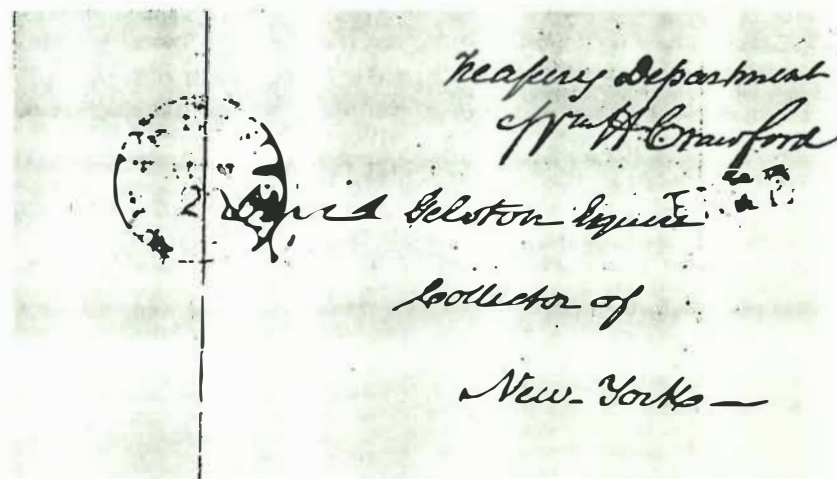 Treasury Department
Wm H Crawford
David Gelston Esquire
Collector of
New-York—